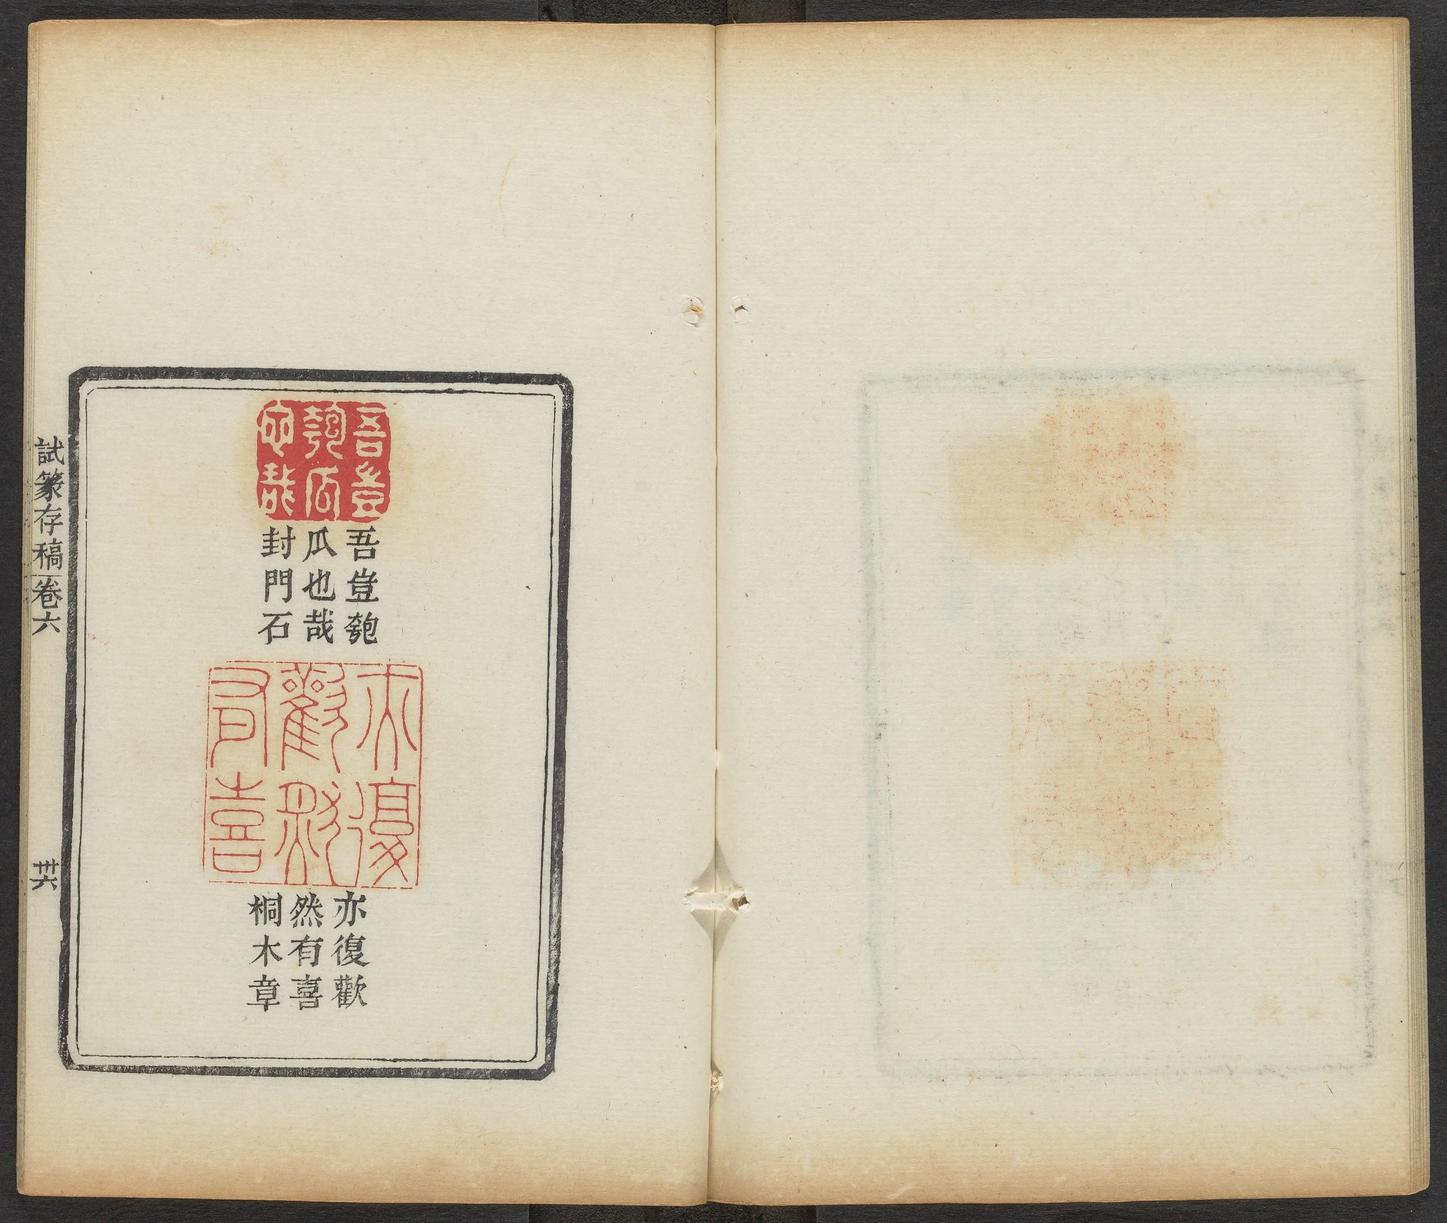 吾豈
匏瓜
也哉
吾豈匏
瓜也哉
封門石
亦復
歡然
有喜
亦復歡
然有喜
桐木章
試篆存稿卷六
卅六